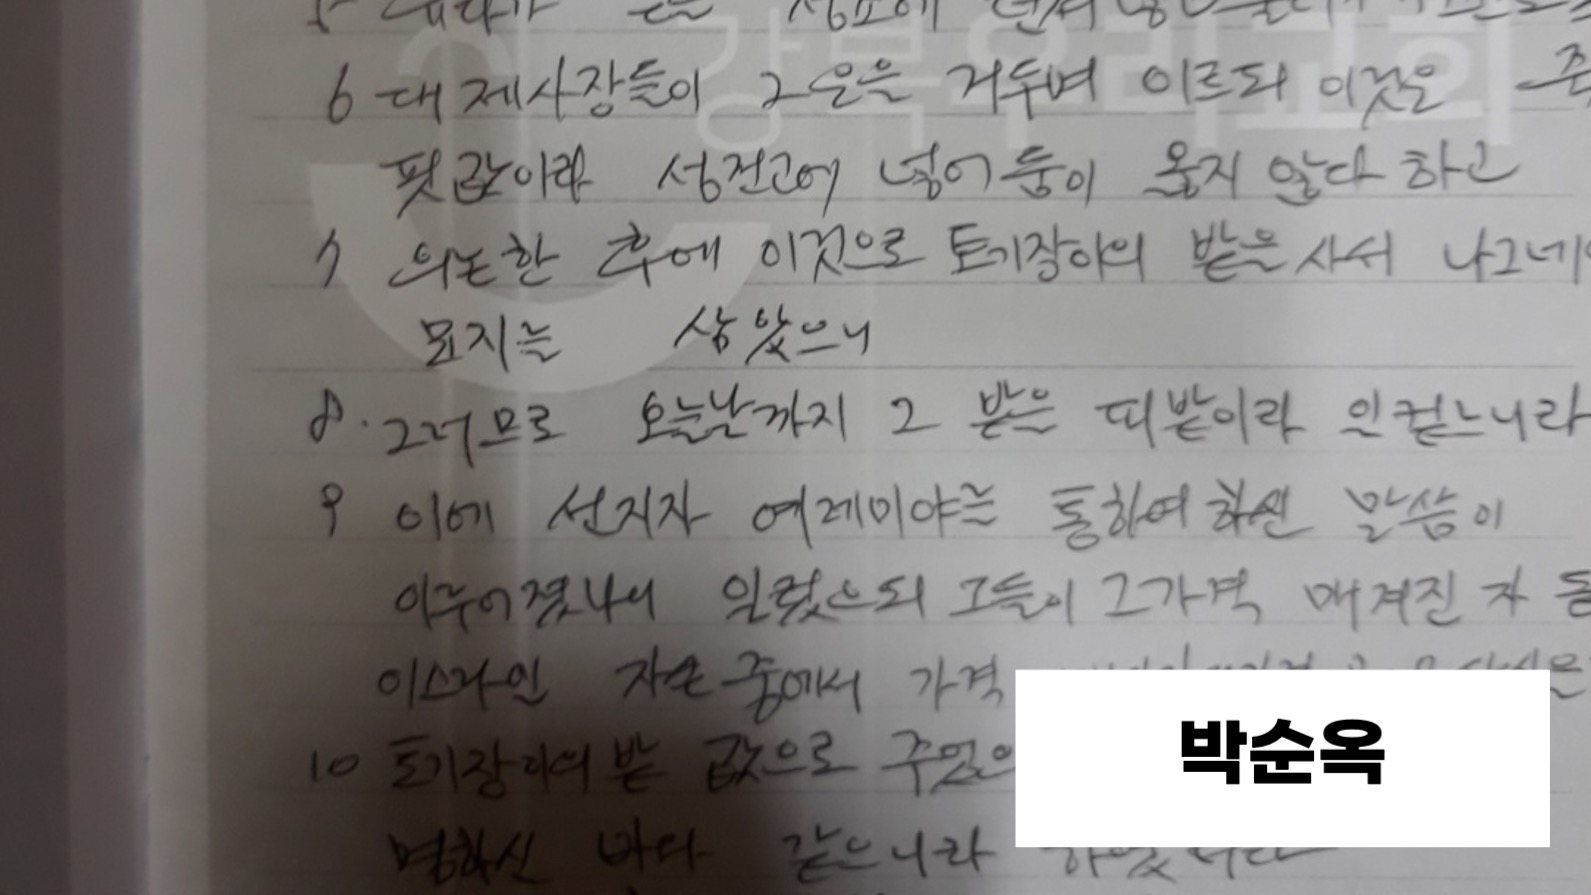 강북우리교회
6 대제사장들이 그 은을 거두며 이르되 이것은
핏값이라 성전고에 넣어 둠이 옳지 않다 하고
7 의논한 후에 이것으로 토기장이의 밭을 사서 나그네
묘지를 삼았으니
8. 그러므로 오늘날까지 그 밭을 피밭이라 일컫느니라
9 이에 선지자 예레미야를 통하여 하신 말씀이
이루어졌나니 일렀으되 그들이 그 가격 매겨진 자
이스라엘 자손 중에서 가격
10 토기장이의 밭 값으로 주었으
명하신 바와 같으니라
박순옥